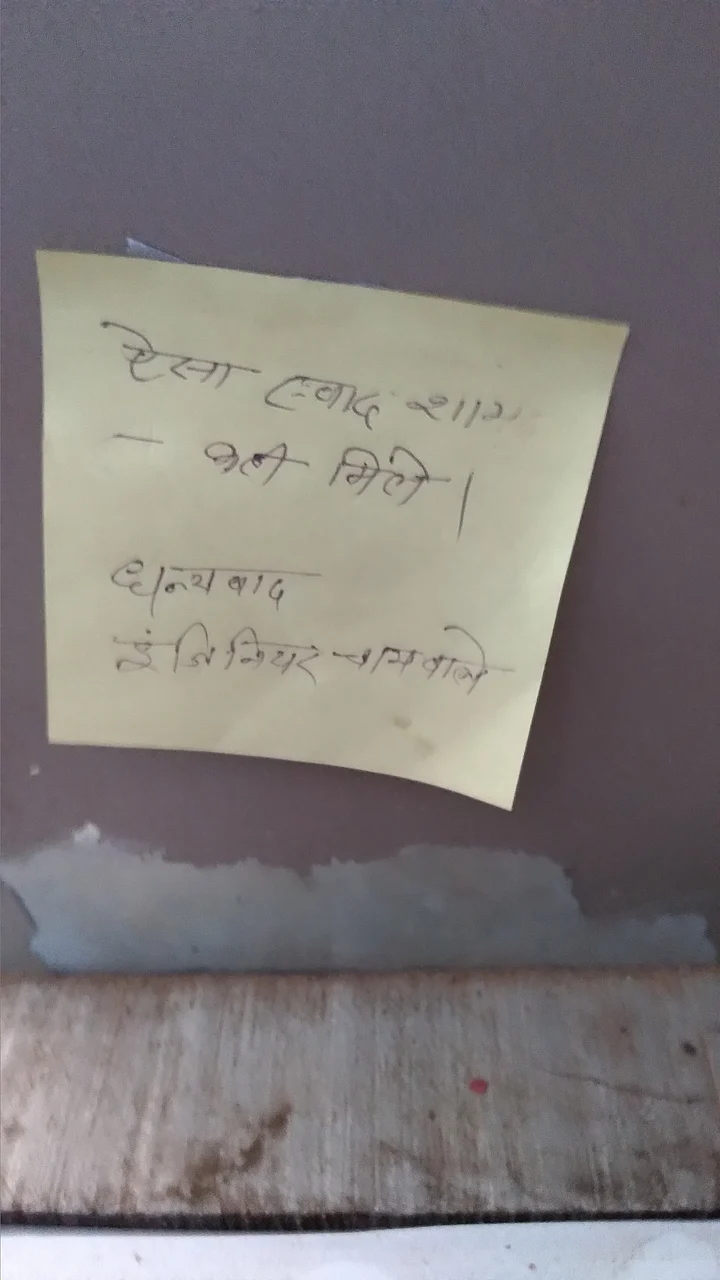 ऐसा स्वाद शाम
- कली मिले।
धन्यवाद
इंजिनियर चायवाले